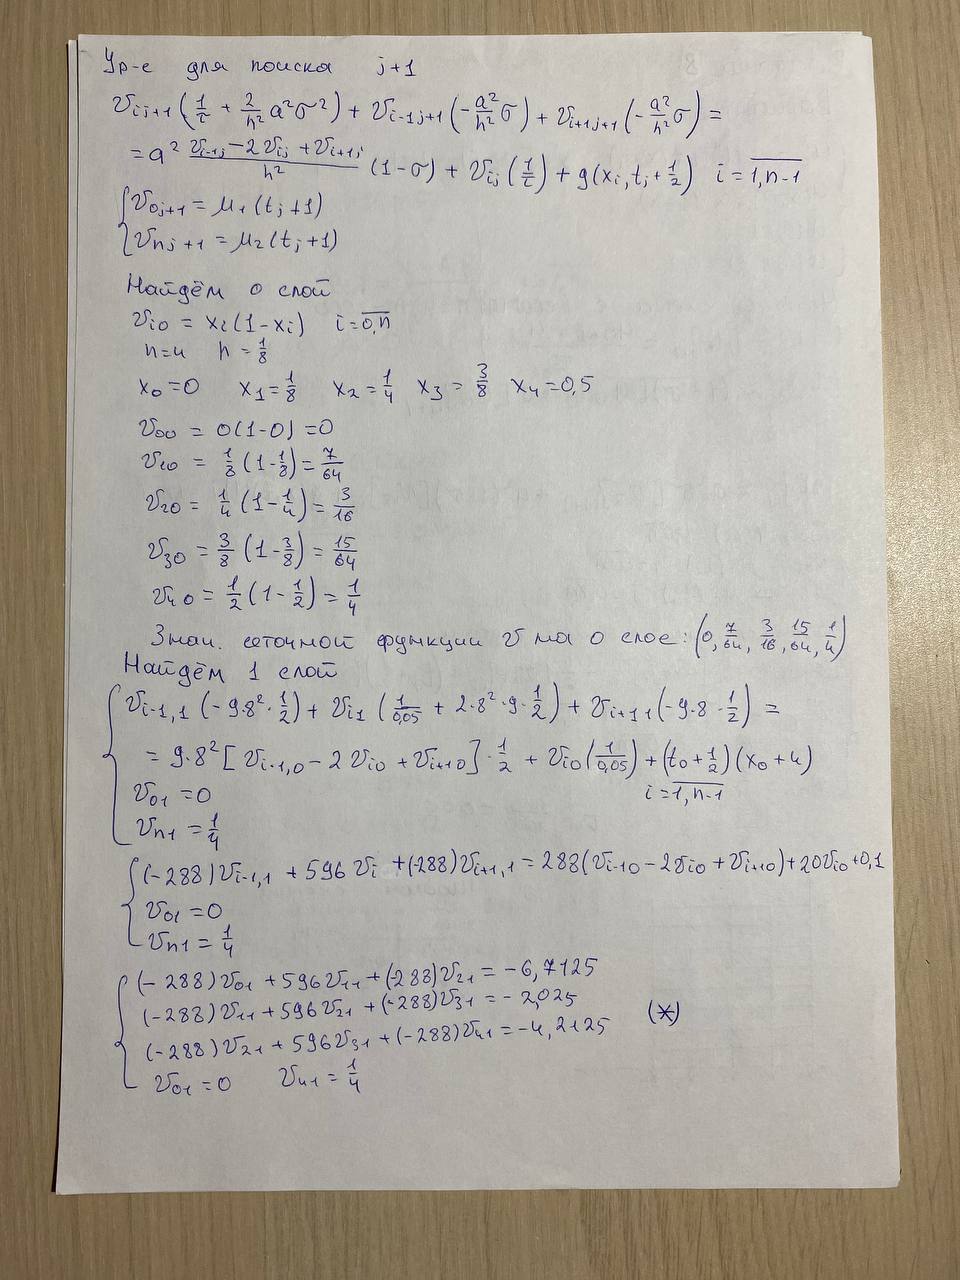 Ур-е для поиска j+1
v_{ij+1}(1/τ + 2/h² a²σ²) + v_{i-1j+1}(-a²/h² σ) + v_{i+1j+1}(-a²/h² σ) =
= a² (v_{i-1j} - 2v_{ij} + v_{i+1j})/h² (1-σ) + v_{ij}(1/τ) + g(x_i, t_j + 1/2) i = \overline{1,n-1}
{ v_{0j+1} = μ₁(t_j+1)
v_{nj+1} = μ₂(t_j+1)
Найдём 0 слой
v_{i0} = x_i(1-x_i) i = \overline{0,n}
n=4 h = 1/8
x₀=0 x₁=1/8 x₂=1/4 x₃=3/8 x₄=0,5
v₀₀ = 0(1-0) = 0
v₁₀ = 1/8(1-1/8) = 7/64
v₂₀ = 1/4(1-1/4) = 3/16
v₃₀ = 3/8(1-3/8) = 15/64
v₄₀ = 1/2(1-1/2) = 1/4
Знач. сеточной функции v на 0 слое: (0, 7/64, 3/16, 15/64, 1/4)
Найдём 1 слой
{ v_{i-1,1}(-9·8²·1/2) + v_{i1}(1/0,05 + 2·8²·9·1/2) + v_{i+11}(-9·8·1/2) =
= 9·8²[v_{i-1,0} - 2v_{i0} + v_{i+10}]·1/2 + v_{i0}(1/0,05) + (t₀+1/2)(x₀+4)
i = \overline{1,n-1}
v₀₁ = 0
v_{n1} = 1/4
{ (-288)v_{i-1,1} + 596v_i + (-288)v_{i+1,1} = 288(v_{i-10} - 2v_{i0} + v_{i+10}) + 20v_{i0} + 0,1
v₀₁ = 0
v_{n1} = 1/4
{ (-288)v₀₁ + 596v₁₁ + (-288)v₂₁ = -6,7125
(-288)v₁₁ + 596v₂₁ + (-288)v₃₁ = -2,025 (*)
(-288)v₂₁ + 596v₃₁ + (-288)v₄₁ = -4,2125
v₀₁ = 0 v₄₁ = 1/4